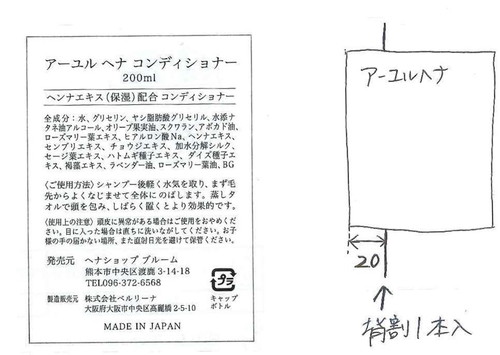 アーユル ヘナ コンディショナー
200ml
ヘンナエキス(保湿)配合 コンディショナー
全成分:水、グリセリン、ヤシ脂肪酸グリセリル、水添ナ
タネ油アルコール、オリーブ果実油、スクワラン、アボカド油、
ローズマリー葉エキス、ヒアルロン酸Na、ヘンナエキス、
センブリエキス、チョウジエキス、加水分解シルク、
セージ葉エキス、ハトムギ種子エキス、ダイズ種子エキ
ス、褐藻エキス、ラベンダー油、ローズマリー葉油、BG
〈ご使用方法〉シャンプー後軽く水気を取り、まず毛
先からよくなじませて全体にのばします。蒸しタ
オルで頭を包み、しばらく置くとより効果的です。
〈使用上の注意〉頭皮に異常がある場合はご使用をおやめくだ
さい。目に入った場合は直ちに洗いながしてください。お子
様の手の届かない場所、また直射日光を避けて保管ください。
発売元 ヘナショップ ブルーム
熊本市中央区渡鹿 3-14-18
TEL096-372-6568
プラ
キャップ
ボトル
製造販売元 株式会社ベルリーナ
大阪府大阪市中央区高麗橋 2-5-10
MADE IN JAPAN
アーユルヘナ
20
背割1本入